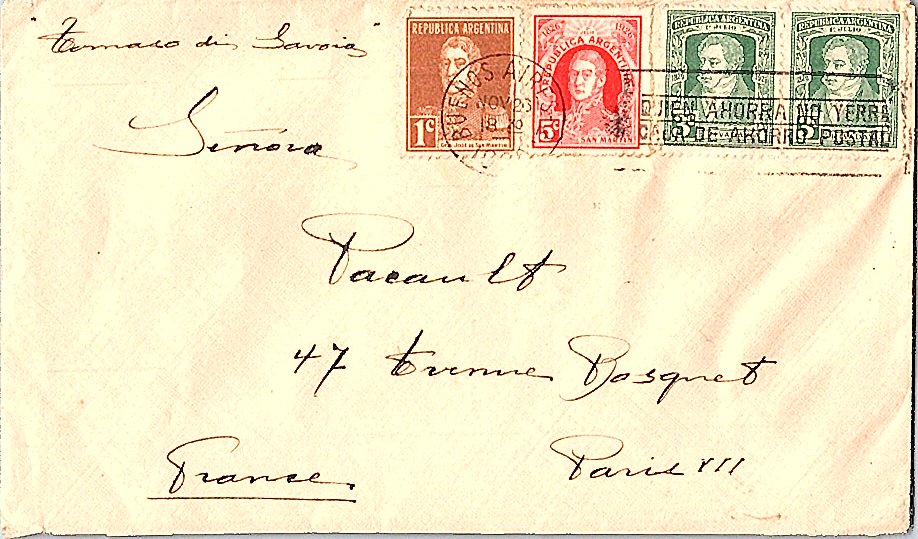 "Tomaso di Savoia"
REPUBLICA ARGENTINA
1c
Gral. José de San Martín
1826 1926
REPUBLICA ARGENTINA
5c
SAN MARTIN
REPUBLICA ARGENTINA
1º JULIO
3c
REPUBLICA ARGENTINA
1º JULIO
3c
BUENOS AIRES
NOV 26
18
QUIEN AHORRA NO YERRA
CAJA DE AHORRO POSTAL
Señora
Pacault
47 Avenue Bosquet
Paris VII
France